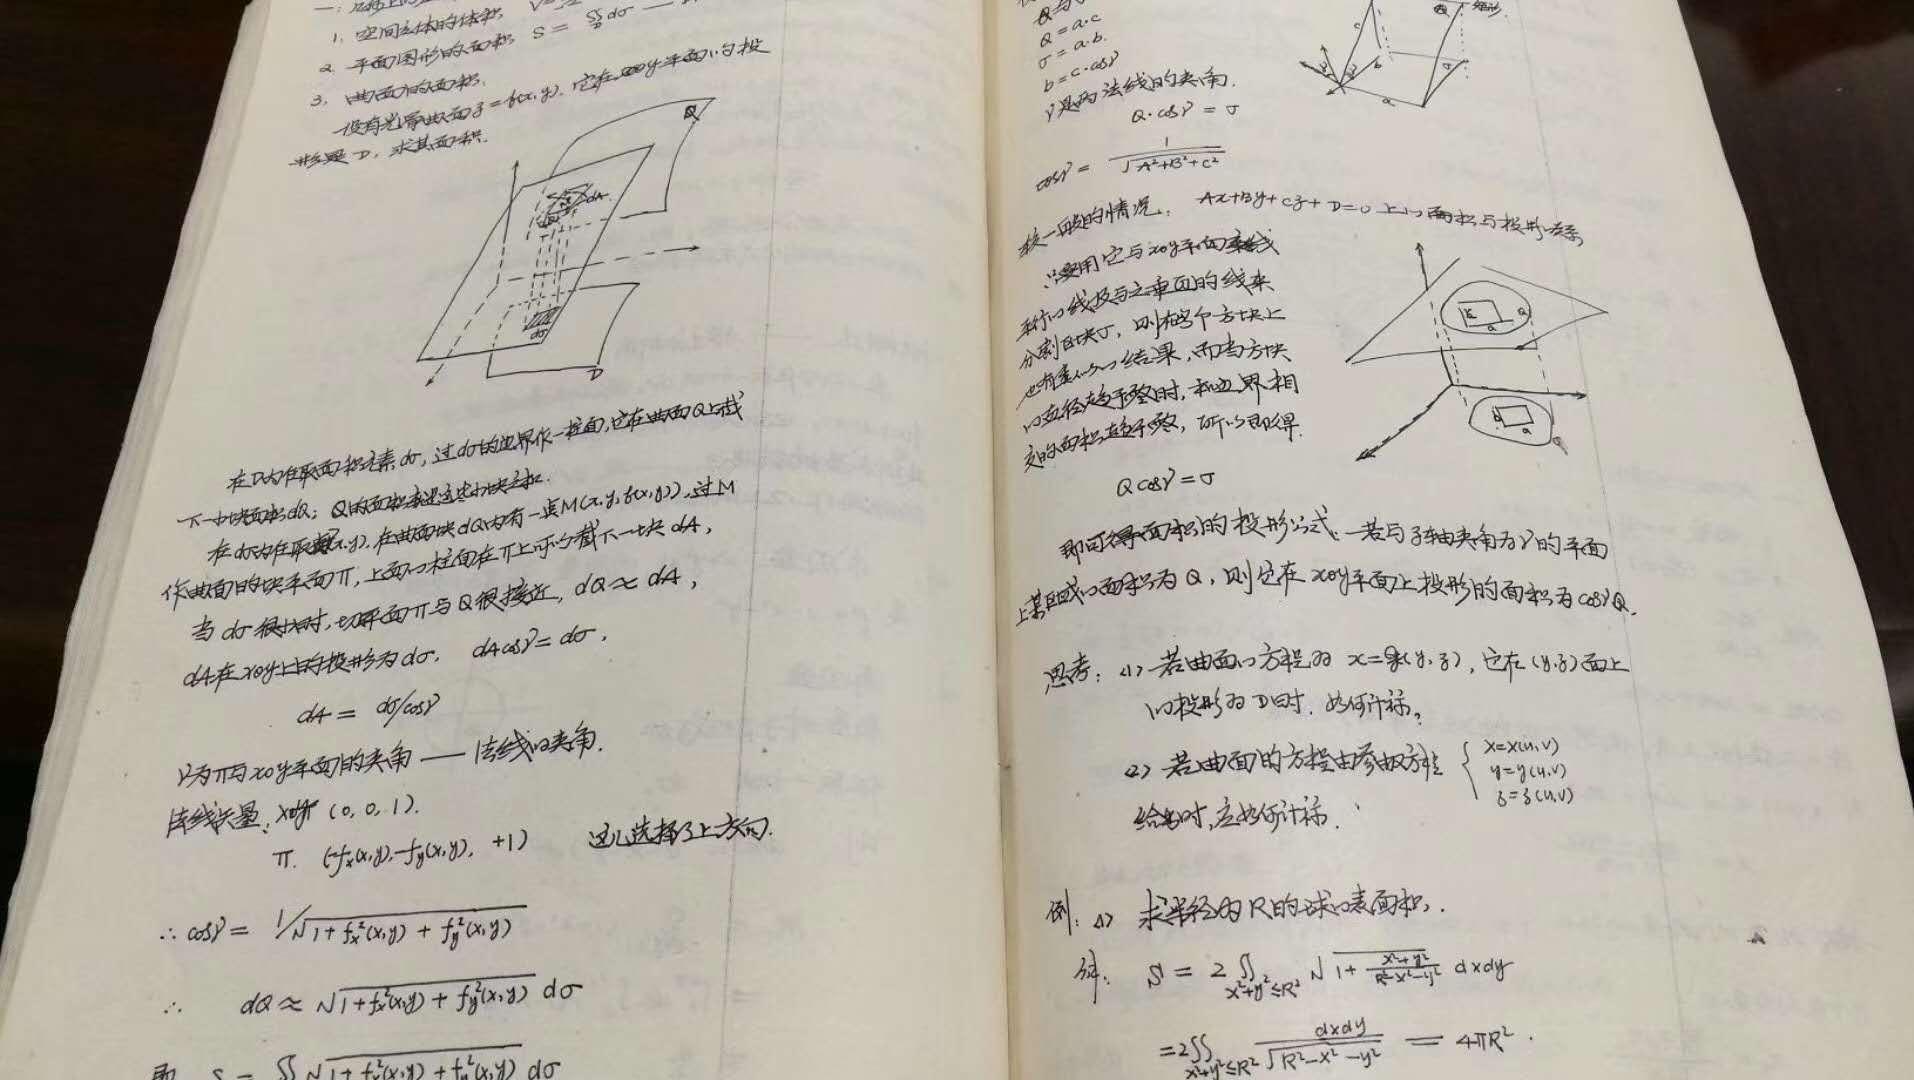 1. 空间立体的体积
2. 平面图形的面积 S = ∬_D dσ
3. 曲面的面积.
设有光滑曲面 z = f(x,y). 它在xoy平面的投
影是 D. 求其面积.
Q
dA
dσ
D
在D内任取面积元素dσ, 过dσ的边界作一柱面, 它在曲面Q上截
下一小块面积dQ;
在dσ内任取(x,y), 在曲面块dQ内有一点M(x,y,f(x,y)), 过M
作曲面的切平面π, 上面的柱面在π上可以截下一块dA,
当dσ很小时, 切平面π与Q很接近, dQ ≈ dA,
dA在xoy上的投影为dσ. dA cosγ = dσ.
dA = dσ/cosγ
γ为π与xoy平面的夹角 — 法线的夹角.
法线矢量: xoy (0, 0, 1).
π. (-fx(x,y), -fy(x,y), +1) 这儿选择了上方向.
∴ cosγ = 1/√(1 + fx²(x,y) + fy²(x,y))
∴ dQ ≈ √(1 + fx²(x,y) + fy²(x,y)) dσ
即 S = ∬ √(1 + fx²(x,y) + fy²(x,y)) dσ
Q = a·c
σ = a·b.
b = c·cosγ
γ是两法线的夹角.
Q·cosγ = σ
cosγ = 1/√(A²+B²+C²)
较一般的情况. Ax+By+Cz+D=0 上的面积与投影关系
只要用它与xoy平面交线
平行的线及与之垂直的线来
分割区块σ, 则在每个方块上
也有类似的结果, 而当方块
的直径趋于零时, 和边界相
交的面积趋于零, 所以即得.
Q cosγ = σ
即可得面积的投影公式: 若与z轴夹角为γ的平面
上某区域的面积为Q, 则它在xoy平面上投影的面积为cosγQ.
思考: (1) 若曲面的方程为 x=g(y,z), 它在(y,z)面上
的投影为D时. 如何计算.
(2) 若曲面的方程由参数方程 { x=x(u,v)
y=y(u,v)
z=z(u,v)
给出时, 应如何计算.
例: (1) 求半径为R的球的表面积.
解: S = 2∬_{x²+y²≤R²} √(1 + (x²+y²)/(R²-x²-y²)) dxdy
= 2∬_{x²+y²≤R²} dxdy/√(R²-x²-y²) = 4πR².